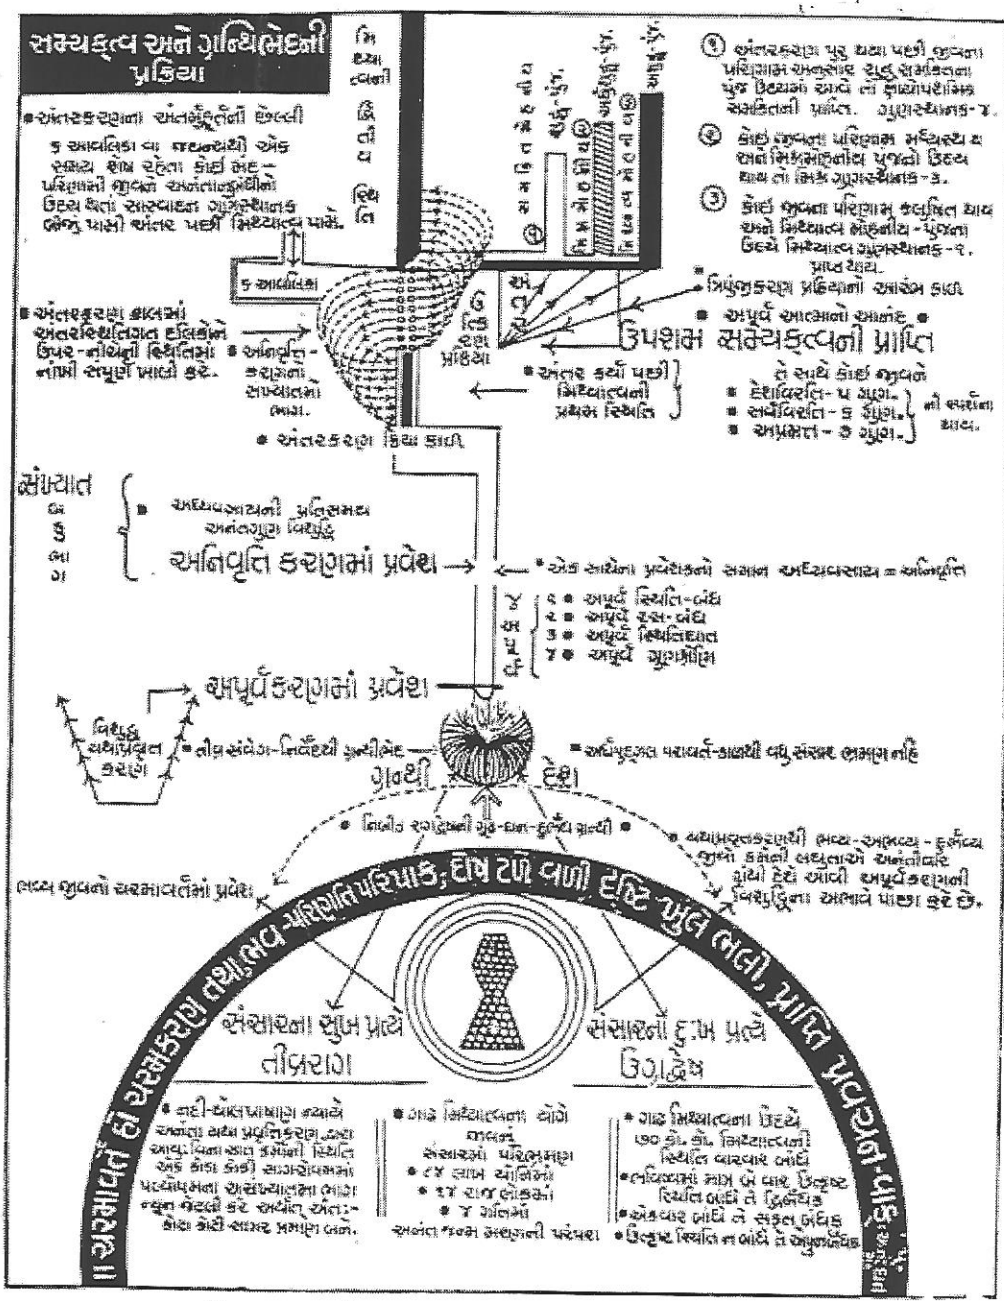 સમ્યક્ત્વ અને ગ્રન્થિભેદની
પ્રક્રિયા
મિ
થ્યા
ત્વની
દ્વિ
તી
ય
સ્થિ
તિ
• અંતરકરણના અંતર્મુહૂર્તની છેલ્લી
૬ આવલિકા વા જઘન્યથી એક
સમય શેષ રહેતા કોઈ મંદ-
પરિણામી જીવને અનંતાનુબંધીનો
ઉદય થતાં સાસ્વાદન ગુણસ્થાનક
પામી અંતર પછી મિથ્યાત્વ પામે.
૬ આવલિકા
સમકિતમોહનીય
શુદ્ધ-પુંજ.
૧
મિશ્રમોહનીય
અર્ધશુદ્ધ-પુંજ.
૨
મિથ્યાત્વમોહનીય
અશુદ્ધ-પુંજ.
૩
૧ અંતરકરણ પુરૂ થયા પછી જીવના
પરિણામ અનુસાર શુદ્ધ સમકિતના
પુંજ ઉદયમાં આવે તો ક્ષાયોપશમિક
સમકિતની પ્રાપ્તિ. ગુણસ્થાનક-૪.
૨ કોઈ જીવના પરિણામ મધ્યસ્થ થાય
અને મિશ્રમોહનીય પુંજનો ઉદય
થાય તો મિશ્ર ગુણસ્થાનક-૩.
૩ કોઈ જીવના પરિણામ કલુષિત થાય
અને મિથ્યાત્વ મોહનીય-પુંજના
ઉદયે મિથ્યાત્વ ગુણસ્થાનક-૧.
પ્રાપ્ત થાય.
• ત્રિપુંજીકરણ પ્રક્રિયાનો આરંભ કાળ
• અપૂર્વ આત્માનો આનંદ •
ઉપશમ સમ્યક્ત્વની પ્રાપ્તિ
તે સાથે કોઈ જીવને
• દેશવિરતિ-૫ ગુણ.
• સર્વવિરતિ-૬ ગુણ.
• અપ્રમત્ત-૭ ગુણ.
ની સ્પર્શના
થાય.
• અંતરકરણ કાલમાં
અંતરસ્થિતિગત દલિકોને
ઉપર-નીચેની સ્થિતિમાં
નાંખી સંપૂર્ણ ખાલી કરે.
• અનિવૃત્તિ-
કરણનો
સંખ્યાતમો
ભાગ.
અં
ત
ર
પ્રક્રિયા
• અંતર કર્યા પછી
મિથ્યાત્વની
પ્રથમ સ્થિતિ
• અંતરકરણ ક્રિયા કાળ
સંખ્યાત
બ
હુ
ભા
ગ
• અધ્યવસાયની પ્રતિસમય
અનંતગુણ વિશુદ્ધિ
અનિવૃત્તિ કરણમાં પ્રવેશ
• એક સાથેના પ્રવેશકનો સમાન અધ્યવસાય = અનિવૃત્તિ
૪
અ
પૂ
ર્વ
૧ • અપૂર્વ સ્થિતિ-બંધ
૨ • અપૂર્વ રસ-બંધ
૩ • અપૂર્વ સ્થિતિઘાત
૪ • અપૂર્વ ગુણશ્રેણિ
અપૂર્વકરણમાં પ્રવેશ
વિશુદ્ધ
યથાપ્રવૃત્ત
કરણ
• તીવ્રસંવેગ-નિર્વેદથી ગ્રન્થીભેદ
• અર્ધપુદ્ગલ પરાવર્ત-કાળથી વધુ સંસાર ભ્રમણ નહિ
ગ્રન્થી
દેશ
• નિબીડ રાગદ્વેષની ગૂઢ-ઘન-દુર્ભેદ્ય ગ્રન્થી •
ભવ્ય જીવનો ચરમાવર્તમાં પ્રવેશ
• યથાપ્રવૃત્તકરણથી ભવ્ય-અભવ્ય-દુર્ભવ્ય
જીવો કર્મની લઘુતાએ અનંતીવાર
ગ્રંથી દેશે આવી અપૂર્વકરણની
વિશુદ્ધિના અભાવે પાછા ફરે છે.
॥ ચરમાવર્તે હો ચરમકરણ તથા, ભવ-પરિણતિ પરિપાક, દોષ ટળે વળી દૃષ્ટિ ખુલે ભલી, પ્રાપ્તિ પ્રવચન-વાક.
સંસારના સુખ પ્રત્યે
તીવ્રરાગ
સંસારના દુઃખ પ્રત્યે
ઉગ્રદ્વેષ
• નદી-ઘોલપાષાણ ન્યાયે
અનંતા યથા પ્રવૃત્તિકરણ દ્વારા
આયુ.વિના સાત કર્મોની સ્થિતિ
એક કોડા કોડી સાગરોપમમાં
પલ્યોપમના અસંખ્યાતમા ભાગ
ન્યૂન જેટલી કરે અર્થાત્ અંતઃ-
કોડા કોડી સાગર પ્રમાણ બને.
• ગાઢ મિથ્યાત્વના યોગે
જીવનું
સંસારમાં પરિભ્રમણ
• ૮૪ લાખ યોનિમાં
• ૧૪ રાજલોકમાં
• ૪ ગતિમાં
અનંત જન્મ મરણની પરંપરા
• ગાઢ મિથ્યાત્વના ઉદયે
૭૦ કો. કો. મિથ્યાત્વની
સ્થિતિ વારંવાર બાંધે
• ભવિષ્યમાં માત્ર બે વાર ઉત્કૃષ્ટ
સ્થિતિ બાંધે તે દ્વિર્બંધક
• એકવાર બાંધે તે સકૃત્ બંધક
• ઉત્કૃષ્ટ સ્થિતિ ન બાંધે તે અપુનર્બંધક